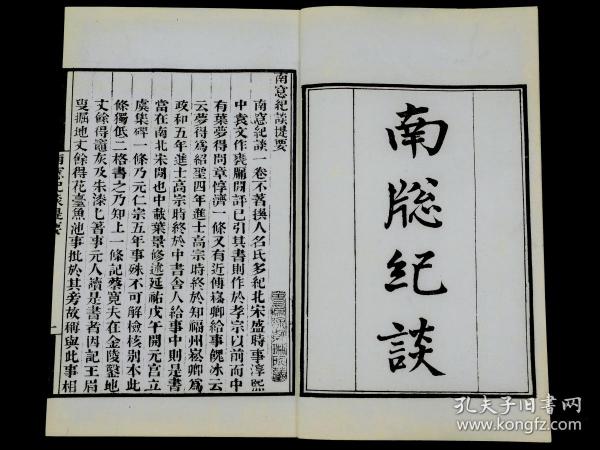 南牕紀談
南窻紀談提要
南窻紀談一卷不著撰人名氏多紀北宋盛時事淳熙
中袁文作甕牖閒評已引其書則作於孝宗以前而中
有葉夢得問章惇濟一條又有近傅崧卿給事餽冰云
云夢得爲紹聖四年進士高宗時終於知福州崧卿爲
政和五年進士高宗時終於中書舍人給事中則是書
當在南北宋閒也中載葉景修述延祐戊午開元宮立
虞集碑一條乃元仁宗五年事殊不可解檢核別本此
條獨低二格書之乃知上一條記蔡寬夫在金陵鑿地
丈餘得竈灰及朱漆匕箸事元人讀是書者因記王眉
叟掘地丈餘得花臺魚池事批於其旁故稱與此事相
孔夫子旧书网
www.kongfz.com